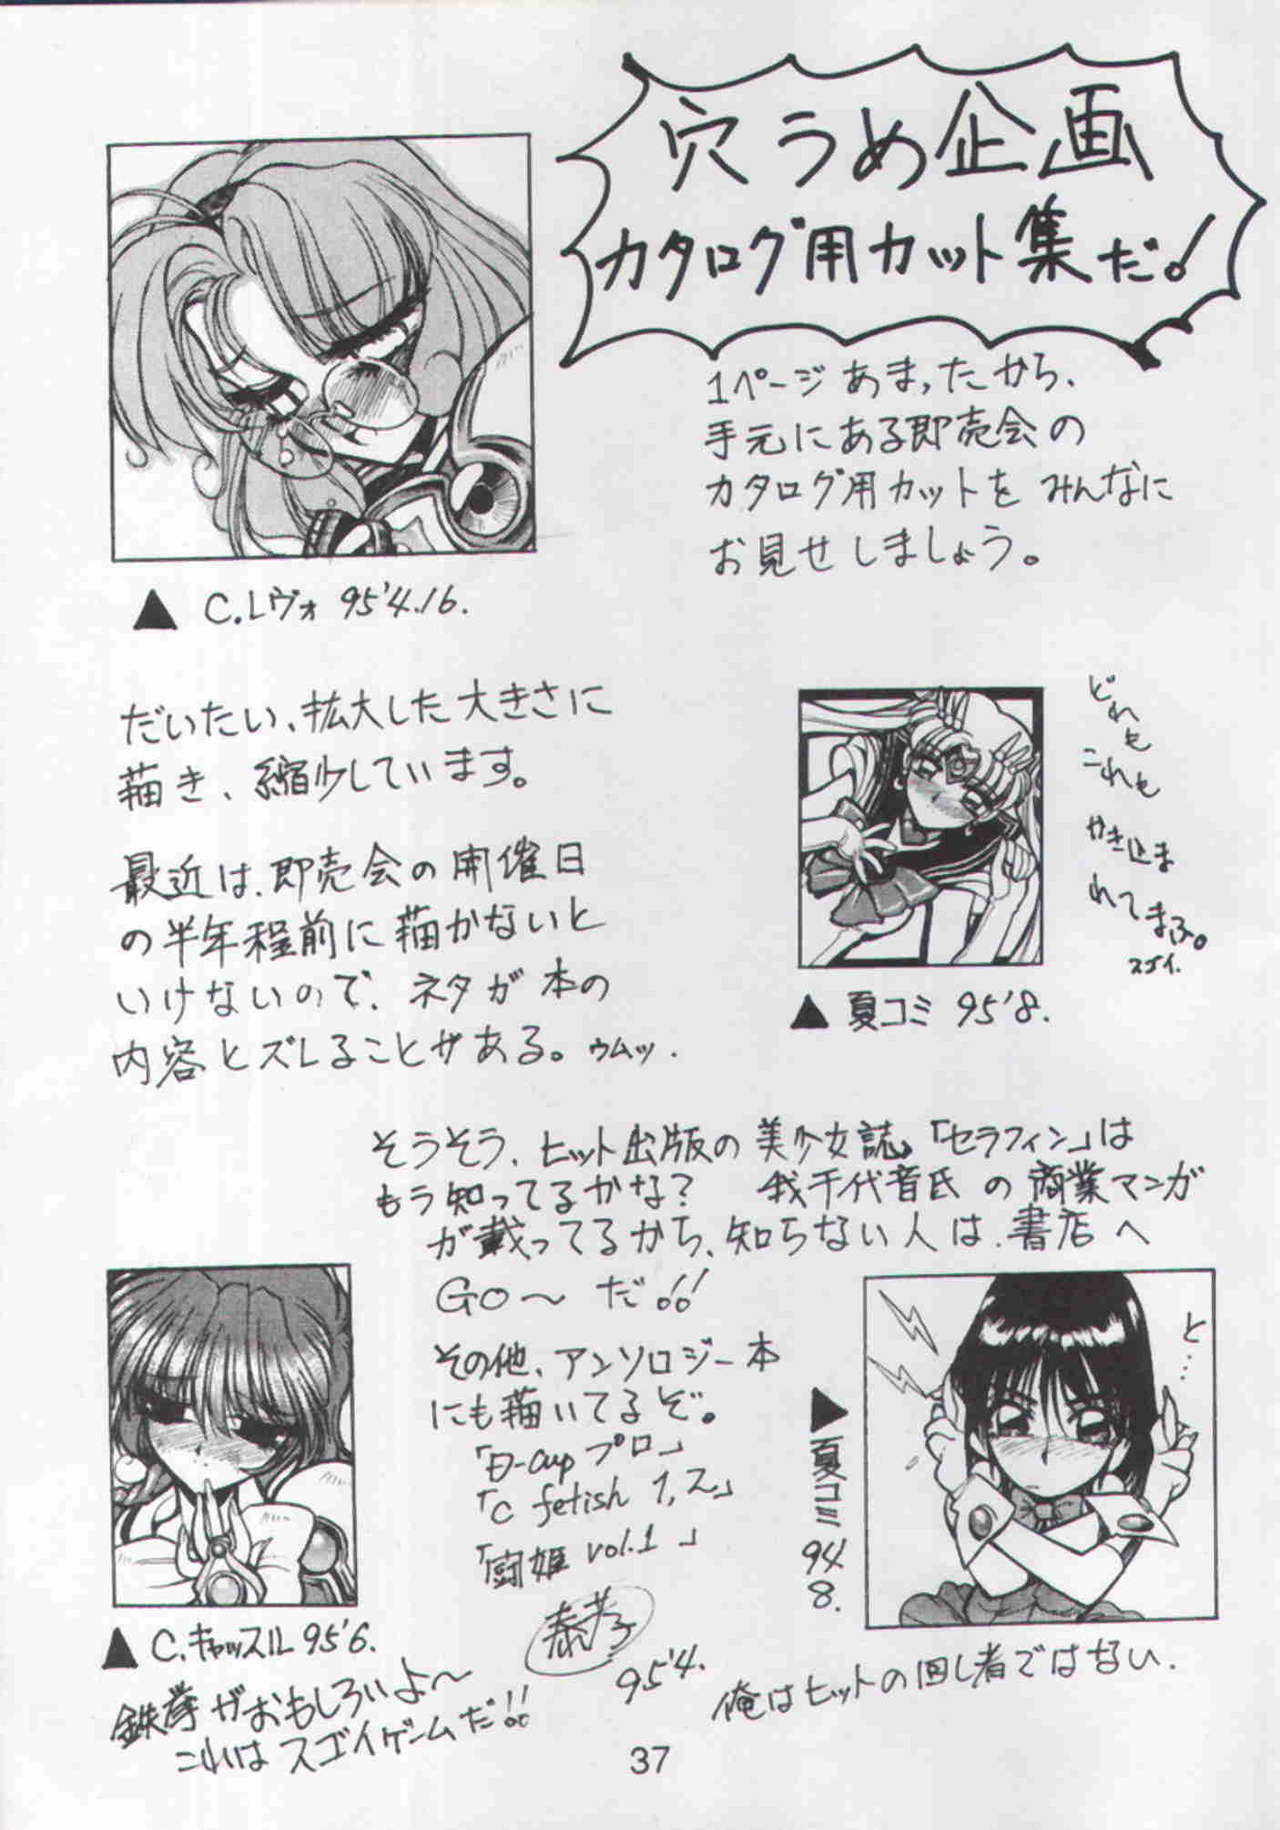 穴うめ企画
カタログ用カット集だ!
1ページあまったから、
手元にある即売会の
カタログ用カットをみんなに
お見せしましょう。
▲ C.レヴォ 95'4.16.
だいたい、拡大した大きさに
描き、縮少しています。
どれも
これも
かき込ま
れてまふ。
スゴイ.
▲ 夏コミ 95'8.
最近は、即売会の開催日
の半年程前に描かないと
いけないので、ネタが本の
内容とズレることがある。ゥムッ.
そうそう、ヒット出版の美少女誌「セラフィン」は
もう知ってるかな? 我千代音氏の商業マンガ
が載ってるから、知らない人は、書店へ
GO〜だ!!
その他、アンソロジー本
にも描いてるぞ。
「D-cupプロ」
「C fetish 1,2」
「闘姫 vol.1」
95'4.
と…
▶夏コミ 94 8.
俺はヒットの回し者ではない.
▲ C.キャッスル 95'6.
鉄拳がおもしろいよ〜
これはスゴイゲームだ!!
37